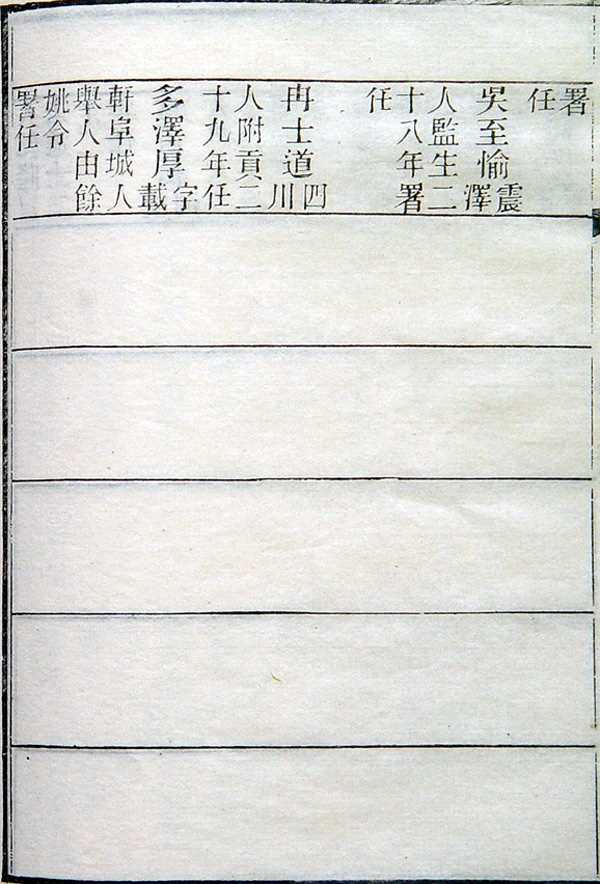 署
任
吳至愉震澤
人監生二
十八年署
任
冉士道四川
人附貢二
十九年任
多澤厚字載
軒阜城人
舉人由餘
姚令
署任